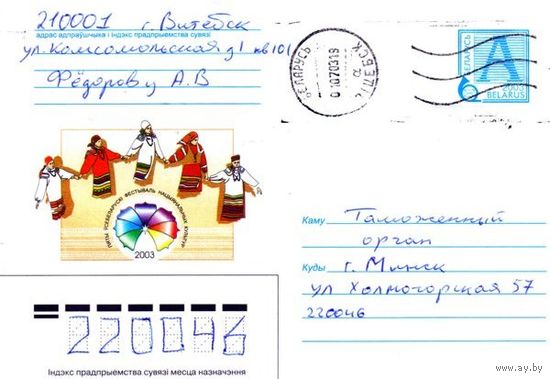 210001 г. Витебск
адрас адпраўшчыка і індэкс прадпрыемства сувязі
ул. Комсомольская д1 кв 101
Фёдорову А.В
БЕЛАРУСЬ
А
2003
BELARUS
ПЯТЫ ЎСЕБЕЛАРУСКІ ФЕСТЫВАЛЬ НАЦЫЯНАЛЬНЫХ КУЛЬТУР
2003
Каму Таможенный
орган
Куды г. Минск
ул Холмогорская 57
220046
220046
Індэкс прадпрыемства сувязі месца назначэння
www.ay.by